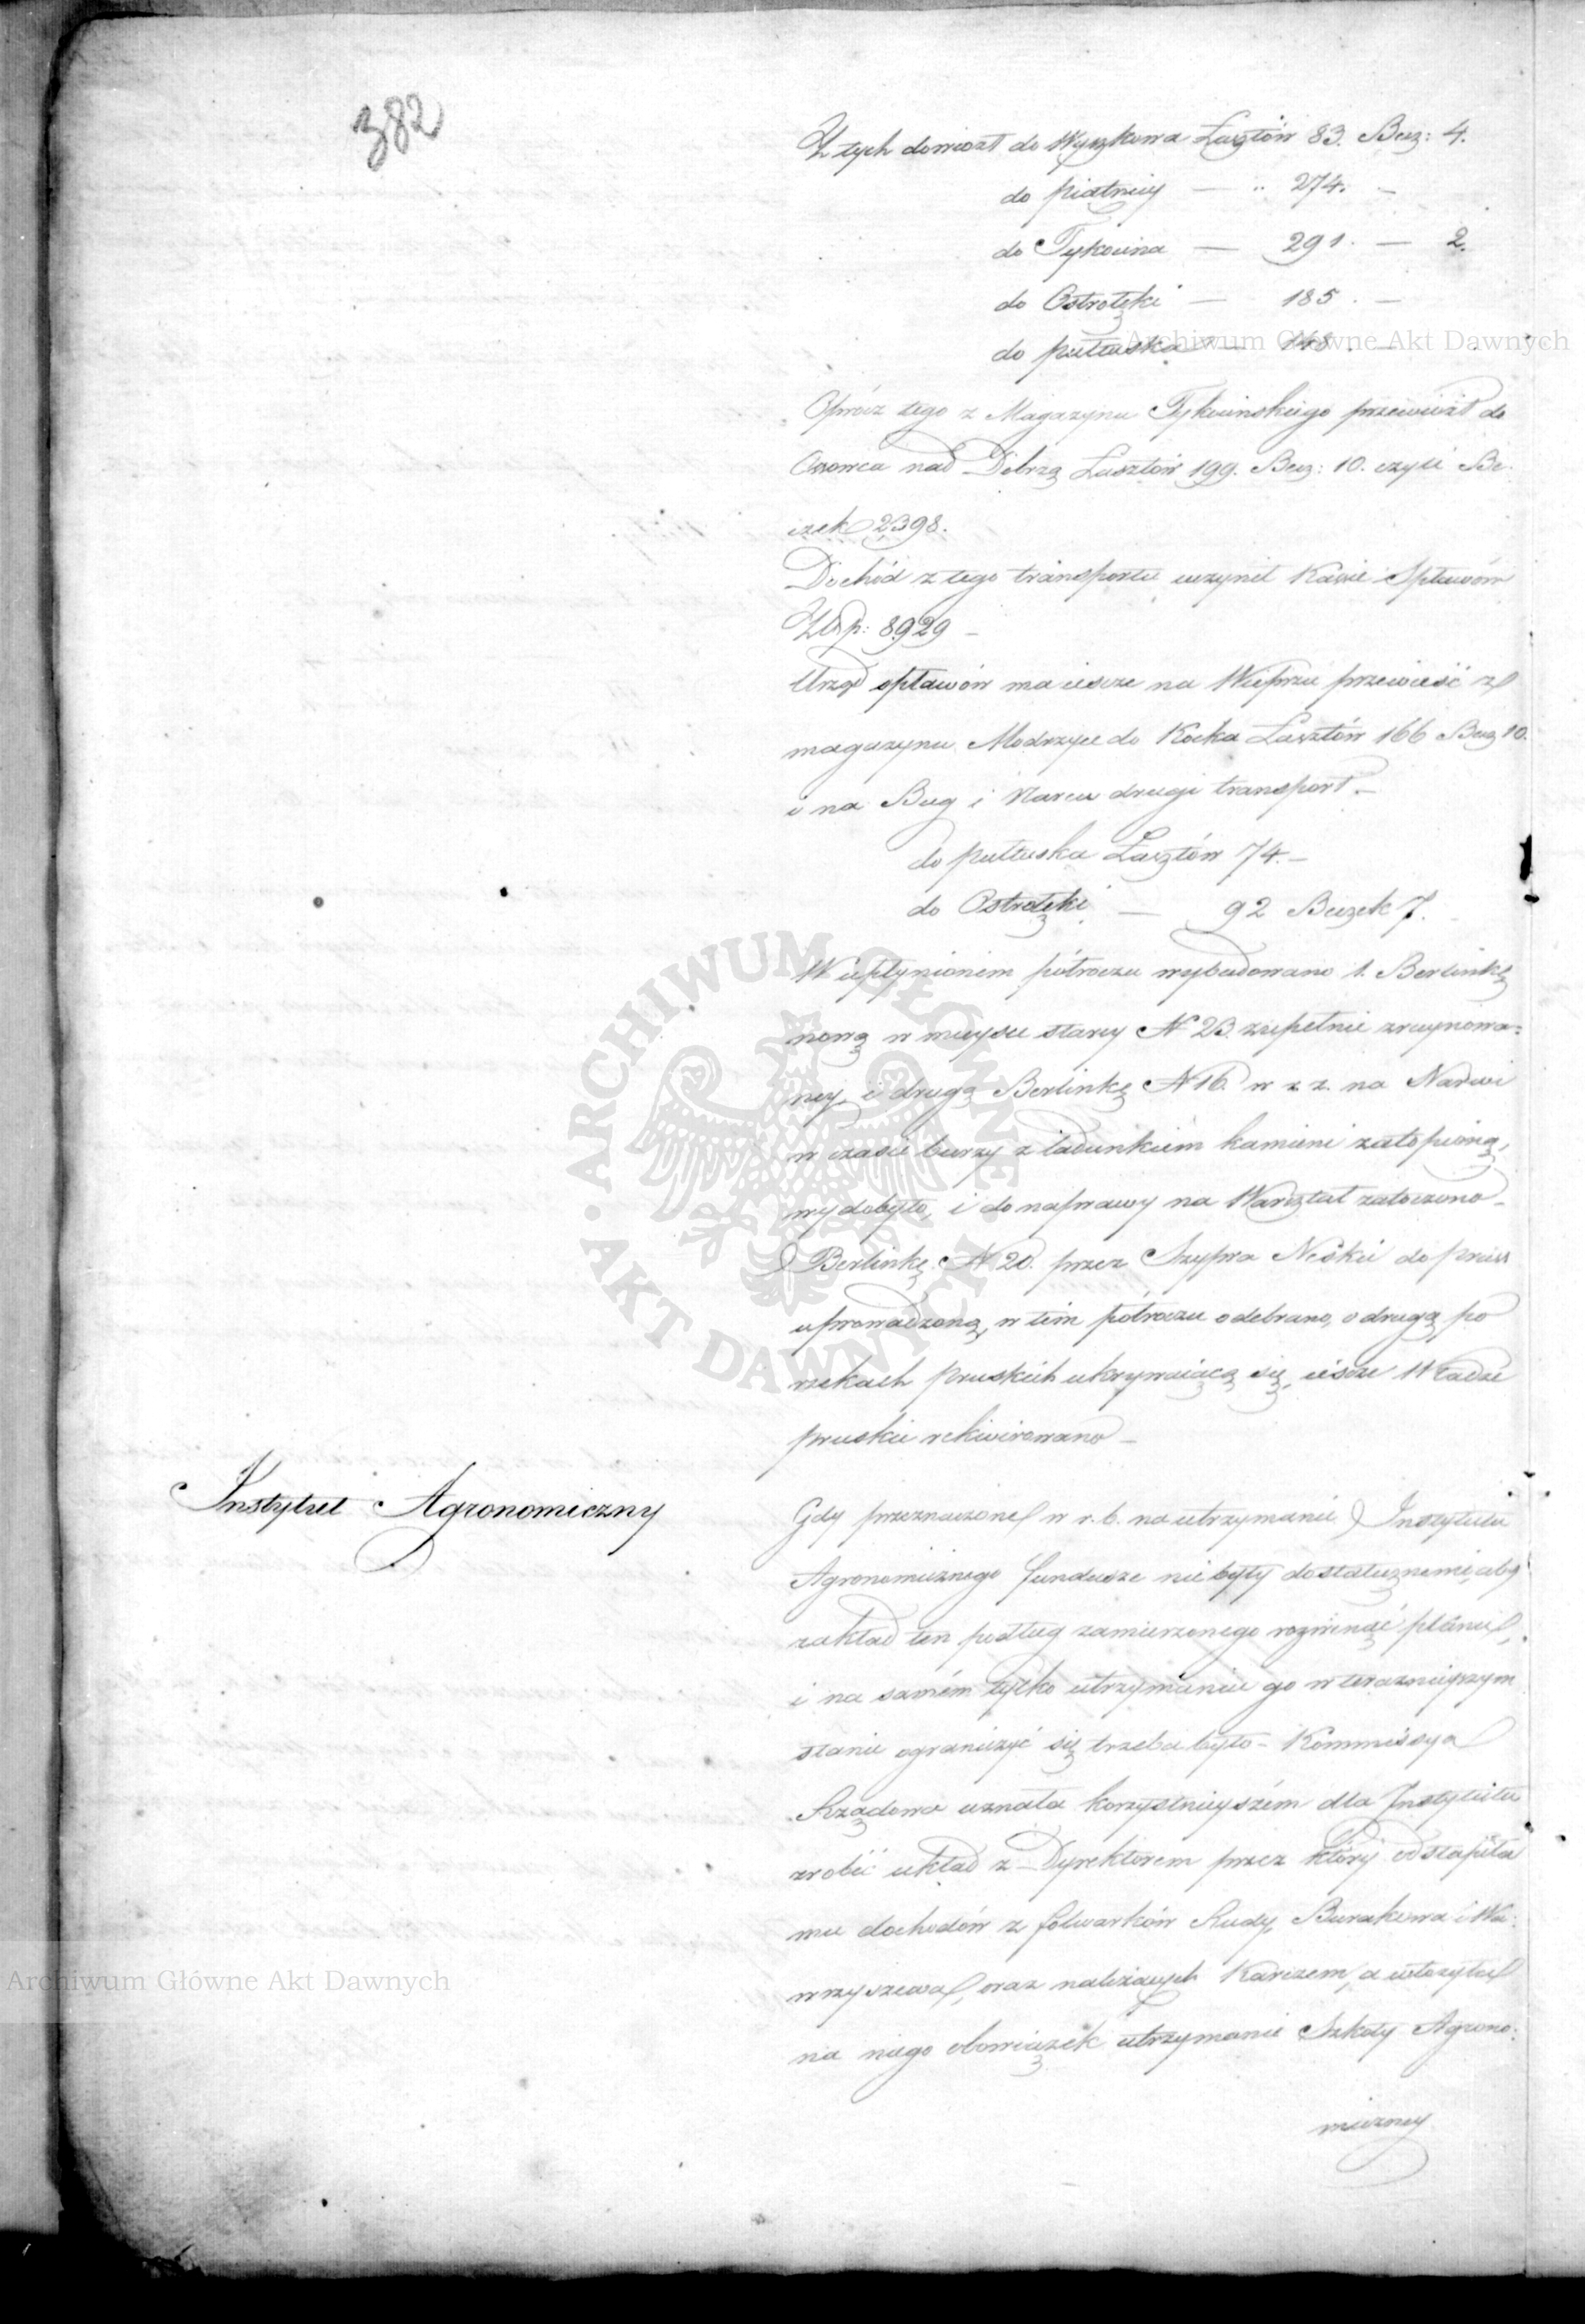 382
Z tych dowiozł do Wyszkowa Łasztów 83. Becz: 4.
do piątnicy — „ 274. —
do Tykocina — 291. — 2.
do Ostrołęki — 185. —
do pułtuska — 148. —
Archiwum Główne Akt Dawnych
Oprócz tego z Magazynu Tykocinskiego przewiózł do
Ossowca nad Biebrzą Łasztów 199. Becz: 10. czyli Be-
czek 2398.
Dochód z tego transportu uczynił Kassie Spławów
Złp: 8929 —
Urząd spławów ma iescze na Wieprzu przewieść z
magazynu Modrzyce do Kocka Łasztów 166 Becz 10.
i na Bug i Narew drugi transport —
do pułtuska Łasztów 74. —
do Ostrołęki — 92 Beczek 7.
W upłynionem półroczu wybudowano 1. Berlinkę
nową w mieysce starey N 23. zupełnie zruynowa=
ney, i drugą Berlinkę N 16. w z. z. na Narwi
w czasie burzy z ładunkiem kamieni zatopioną,
wydobyto, i do naprawy na Warsztat zatoczono —
Berlinkę N 20. przez Szypra do pruss
uprowadzoną, w tém półroczu odebrano, o drugą po
rzekach pruskich ukrywaiącą się, iescze Władze
pruskie rekwirowano —
Instytut Agronomiczny
Gdy przeznaczone w r. b. na utrzymanie Instytutu
Agronomicznego fundusze nie były dostatecznemi, aby
zakład ten podług zamierzonego rozwinąć planu,
i na samém tylko utrzymaniu go w teraznieyszym
stanie ograniczyć się trzeba było — Kommissya
Rządowa uznała korzystnieyszém dla Instytutu
zrobić układ z Dyrektorem przez który odstąpiła
mu dochodów z folwarków Rudy, Burakowa i Wa-
wrzyszewa, oraz należących Karczem, a włożyła
na niego obowiązek utrzymanie Szkoły Agrono-
miczney
ARCHIWUM GŁÓWNE
AKT DAWNYCH
Archiwum Główne Akt Dawnych